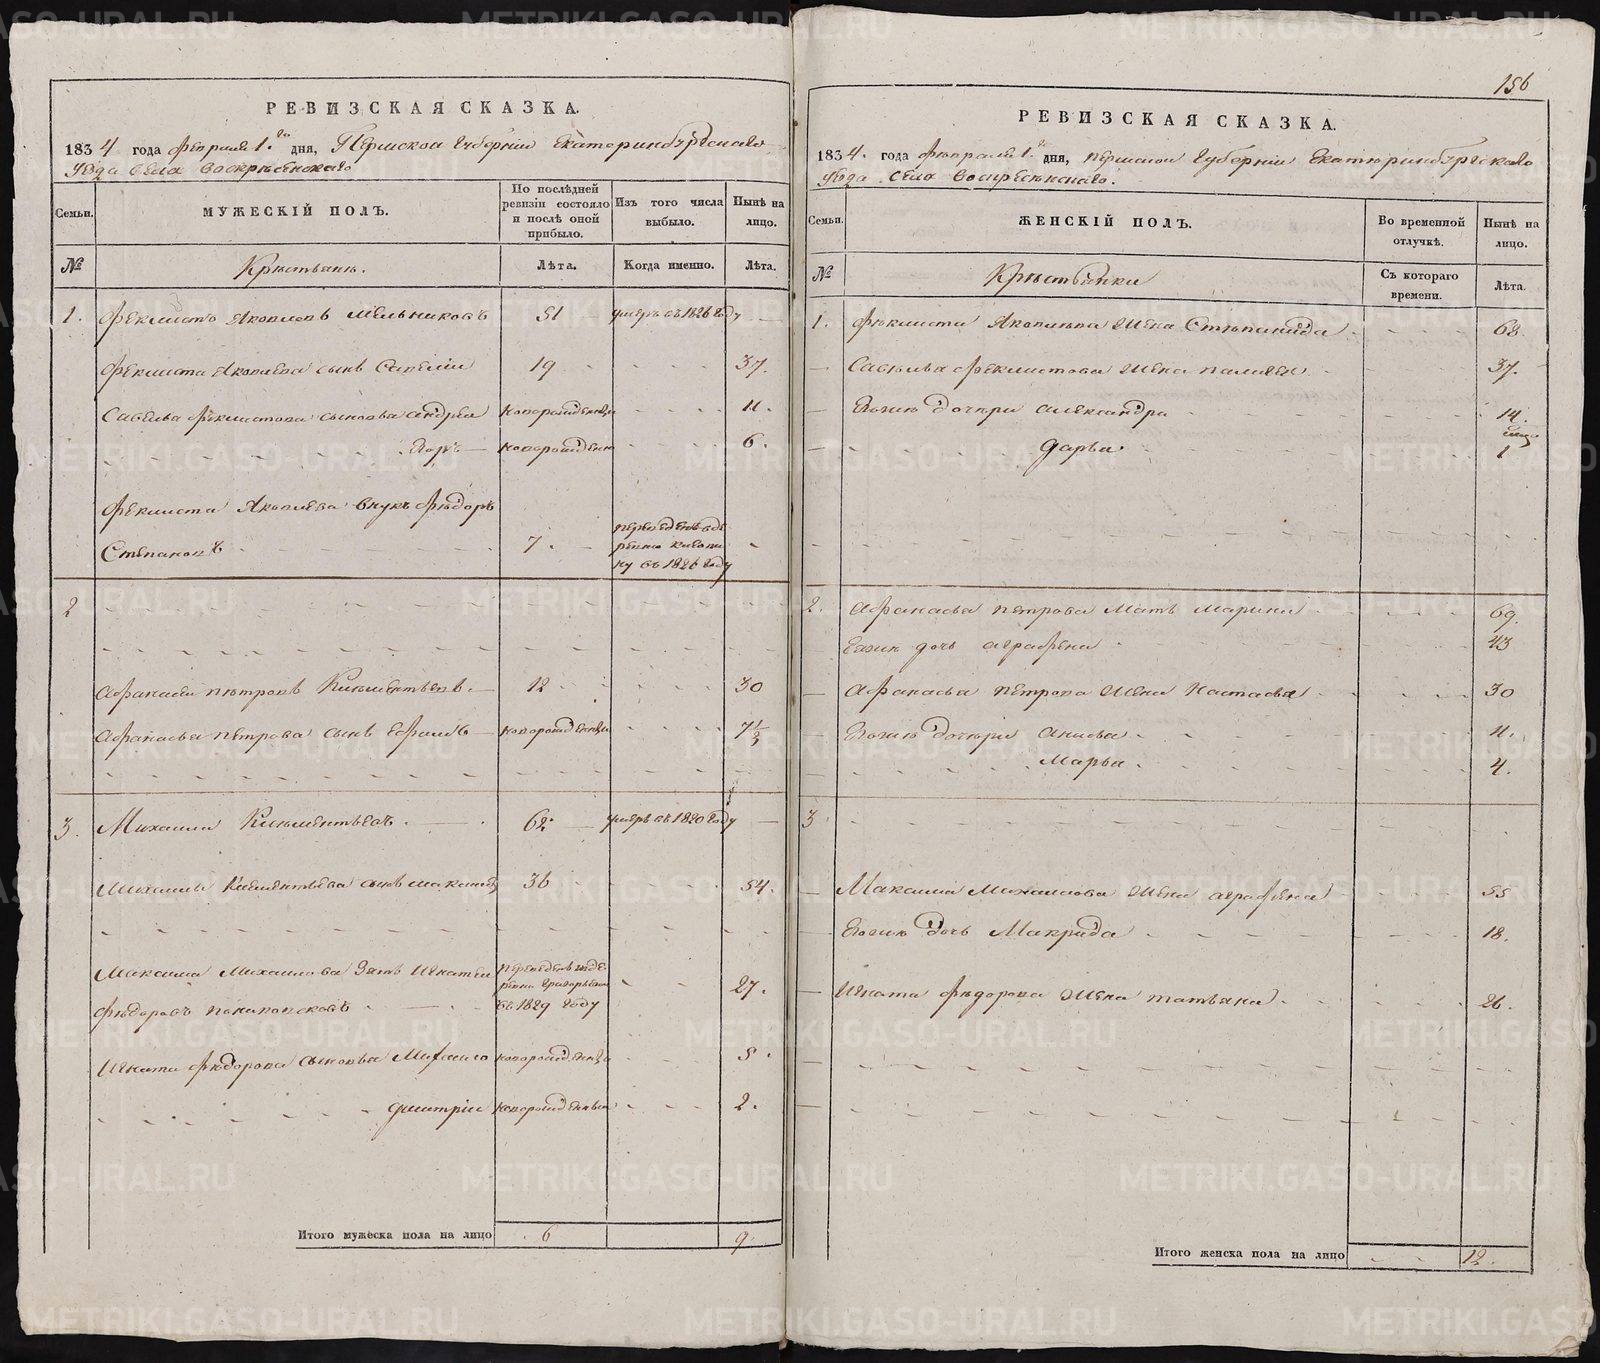 РЕВИЗСКАЯ СКАЗКА.
1834 года февраля 1го дня, Пермской губернии Екатеринбургскаго
уѣзда села Воскресенскаго
Семьи.
МУЖЕСКІЙ ПОЛЪ.
По послѣдней ревизіи состояло и послѣ оной прибыло.
Изъ того числа выбыло.
Нынѣ на лицо.
№
Крестьяне.
Лѣта.
Когда именно.
Лѣта.
1. Феклистъ Яковлевъ Мельниковъ 51 умеръ въ 1826 году
Феклиста Яковлева сынъ Савелій 19 37.
Савелья Феклистова сыновья Андрей новорожденный 11.
Егоръ новорожденный 6.
Феклиста Яковлева внукъ Федоръ
Степановъ 7. переведенъ въ деревню в 1826 году
2
Афанасей Петровъ Климентьевъ 12 30
Афанасья Петрова сынъ Ефимъ новорожденный 7 1/2
3. Михайла Климентьевъ 62 умеръ въ 1820 году
Михайлы Климентьева сынъ Максимъ 36 54.
Максима Михайлова зять Игнатей переведенъ из деревни
Федоровъ въ 1829 году 27.
Игната Федорова сыновья Михайло новорожденный 5.
Дмитрій новорожденный 2.
Итого мужеска пола на лицо 6 9
156
РЕВИЗСКАЯ СКАЗКА.
1834. года февраля 1го дня, Пермской губерніи Екатеринбургскаго
уѣзда села Воскресенскаго.
Семьи.
ЖЕНСКІЙ ПОЛЪ.
Во временной отлучкѣ.
Нынѣ на лицо.
№
Крестьянки
Съ котораго времени.
Лѣта.
1. Феклиста Яковлева жена Степанида 68.
Савелья Феклистова жена 37.
Евою дочери Александра 14.
Дарья 1
2. Афанасья Петрова мать Марина 69.
Евою дочь Аграфена 43
Афанасья Петрова жена Настасья 30
Евою дочери Анисья 11.
Марья 4.
3
Максима Михайлова жена Аграфена 55
Евою дочь Макрида 18.
Игната Федорова жена Татьяна 26.
Итого женска пола на лицо 12.
METRIKI.GASO-URAL.RU